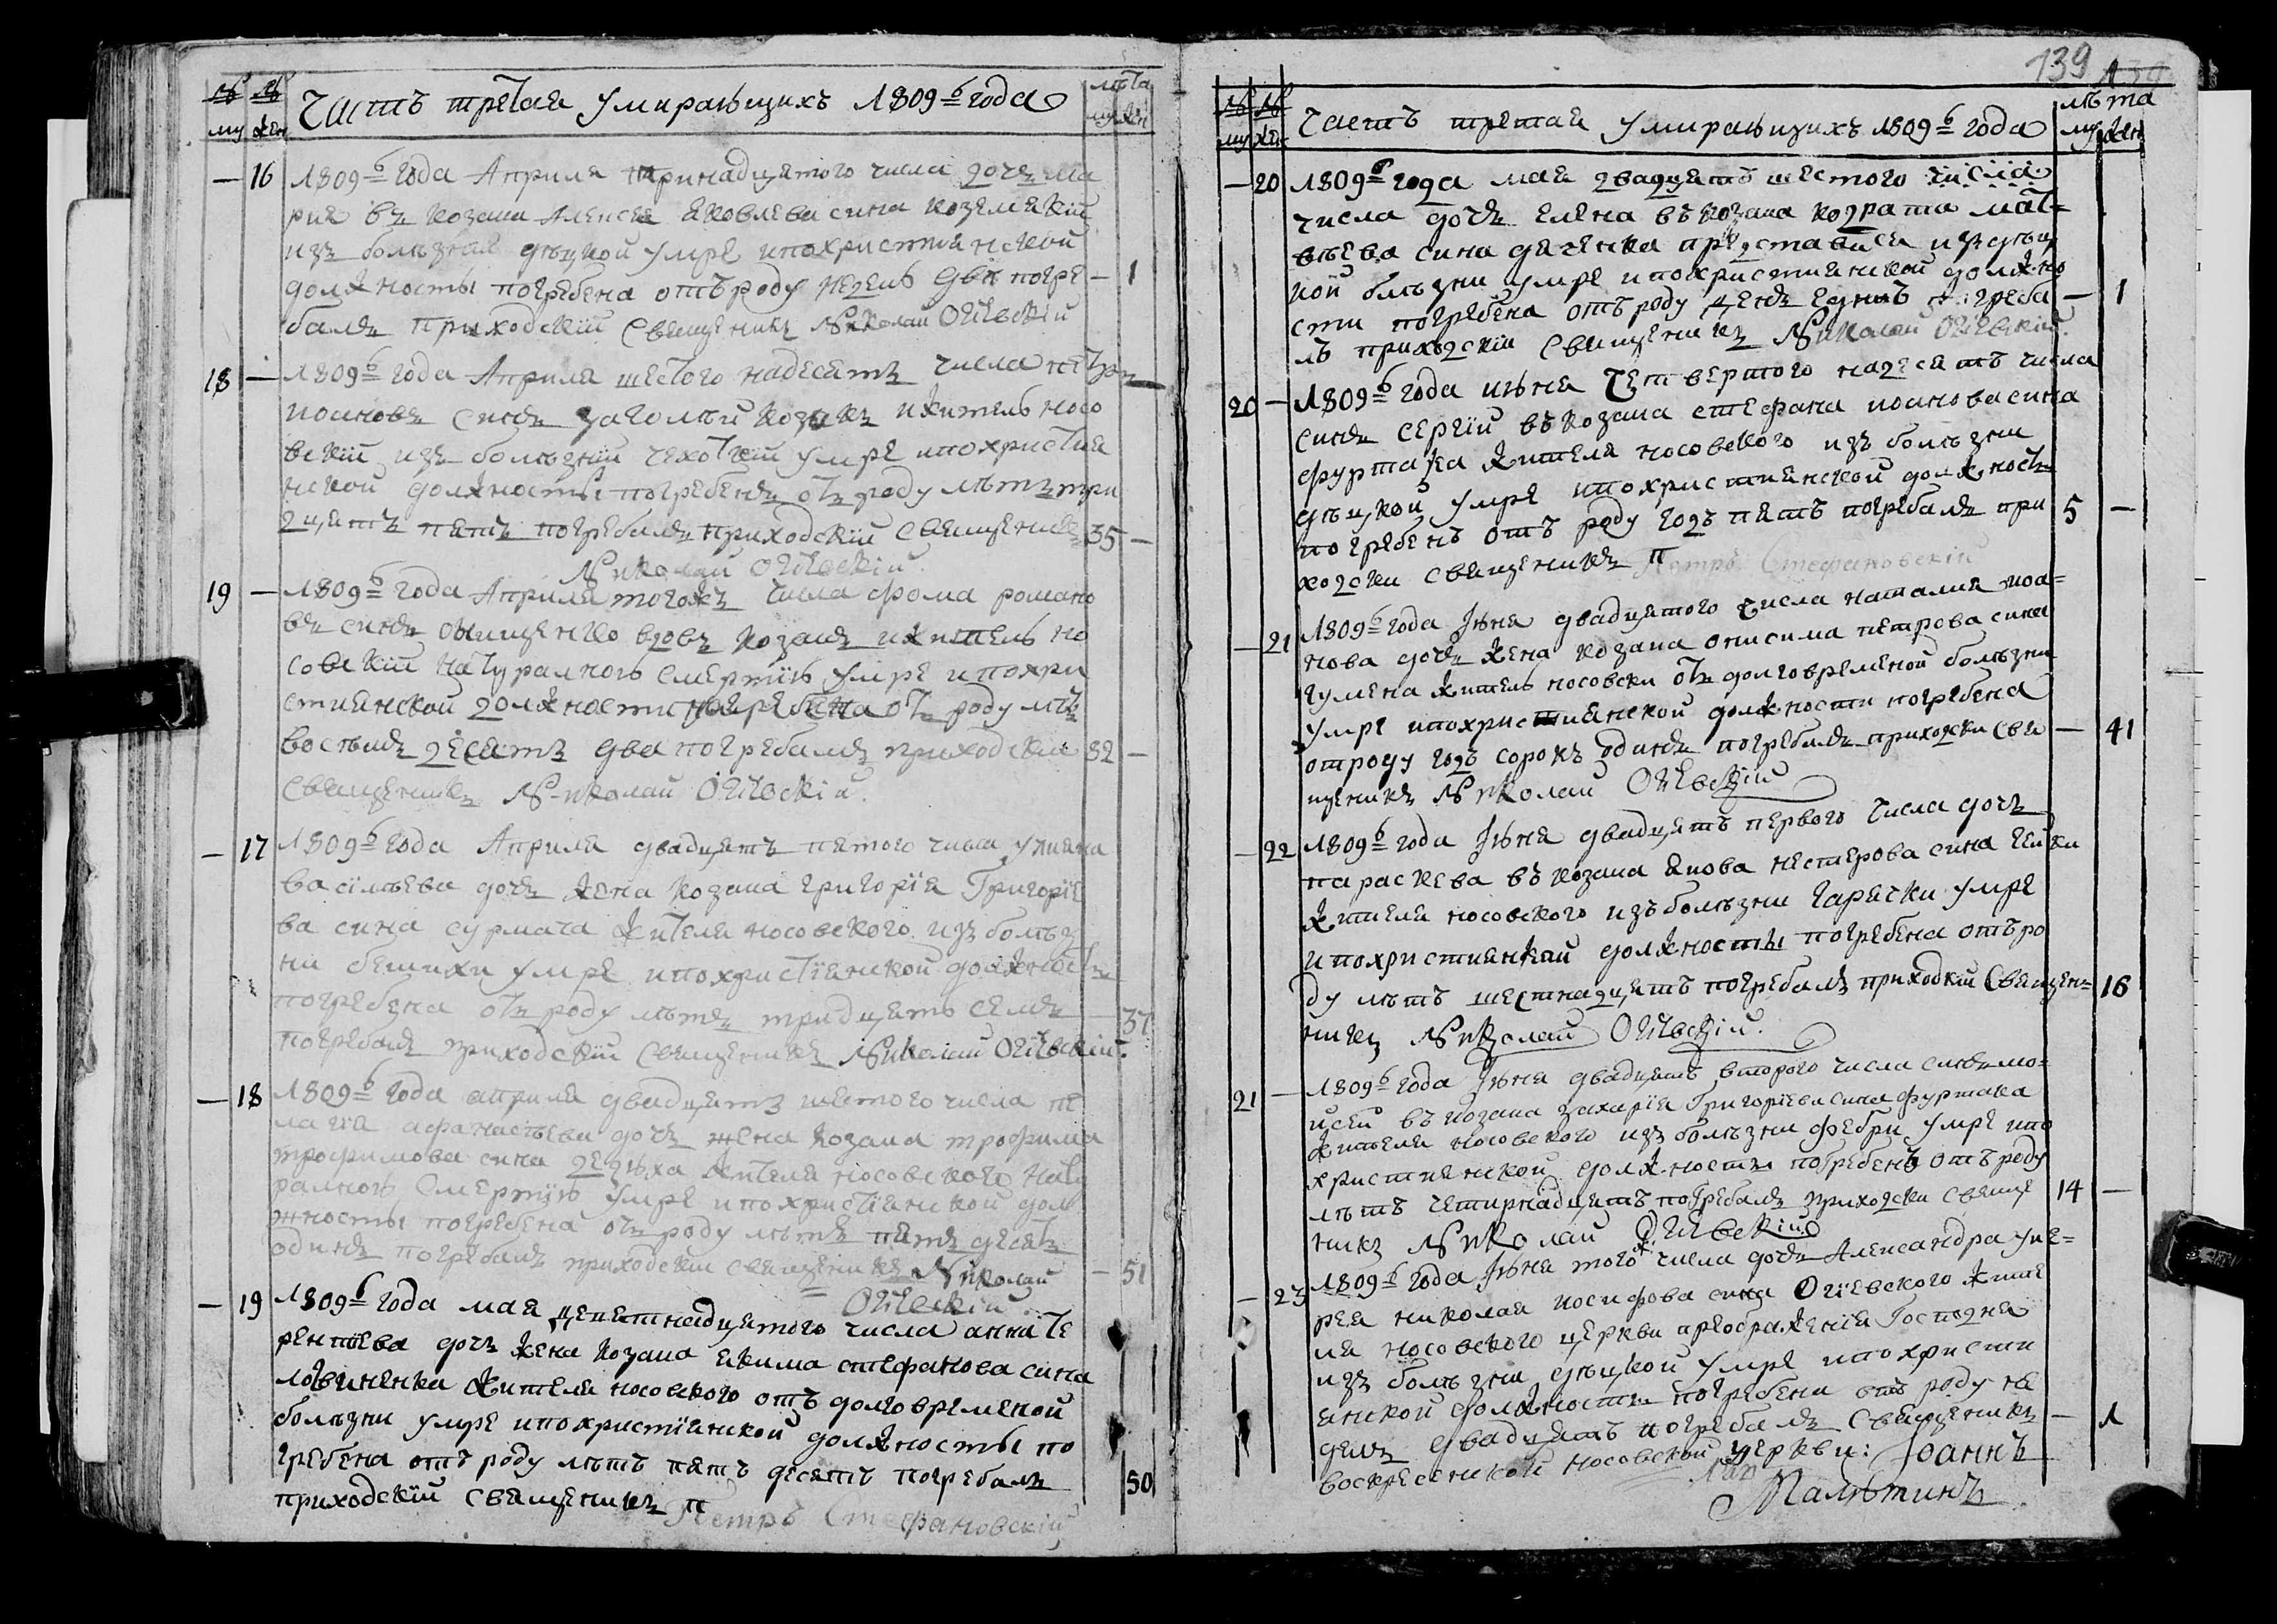 № № Часть третая умирающихъ 1809ᵍᵒ года лѣта
му жен му жен
— 16 1809ᵍᵒ года Априля тринадцятого числа дочъ Ма
рия въ козака Алексея Яковлева сина
изъ болезней дѣцкой умре ипохристиянской
должносты погребена отъ роду недель двѣ погре — 1
балъ приходскій Священникъ Николай Огіевскій
18 — 1809ᵍᵒ года Априля шестого надесять числа петръ —
иоановъ синъ козакъ ижитель носо
вскій изъ болѣзній чехоткій умре ипохристия
нской должносты погребенъ отъ роду лѣтъ три
дцять пять погребалъ приходскій Священникъ 35 —
Николай Огіевскій.
19 — 1809ᵍᵒ года Априля тогожъ числа фома романо
въ синъ онищенко вдовъ козакъ ижитель но
совскій натуралною смертію умре ипохри
стиянской должности погребена отъ роду лѣтъ
восѣмъ десятъ два погребалъ приходскій 82 —
Священникъ Николай Огіевскій.
— 17 1809ᵍᵒ года Априля двадцять пятого числа улияна
василѣева дочъ жена козака григорія Григоріе
ва сина сурмача жителя носовского изъ болѣз
ни бешихи умре ипохристіянской должносты
погребена отъ роду лѣтъ тридцять семъ — 37
погребалъ приходскій Священникъ Николай Огіевскій.
— 18 1809ᵍᵒ года априля двадцять шестого числа пе
лагія афанасѣева дочъ жена козака трофима
трофимова сина жителя носовского нату
ралною Смертію умре ипохристіянской дол
жносты погребена отъ роду лѣтъ пятъ десятъ
одинъ погребалъ приходскій священникъ Николай — 51
Огіевскій.
— 19 1809ᵍᵒ года мая девятнадцятого числа анна те
рентѣева дочъ жена козака якима стефанова сина
жителя носовского отъ долговременой
болѣзни умре ипохристіянской должносты по
гребена отъ роду лѣтъ пятъ десятъ погребалъ 50
приходскій священникъ П
Петръ Стефановскій
139
№ № Часть третая умирающихъ 1809ᵍᵒ года лѣта
му жен му жен
— 20 1809ᵍᵒ года мая двадцять шестого числа
числа дочъ елена въ козака кодрата мат-
вѣева сина дяченка представися изъ дѣц
кой болѣзни умре ипохристиянской должно
сти погребена отъ роду день еднъ погреба — 1
лъ приходскій священникъ Николай Огіевскій.
20 — 1809ᵍᵒ года июня четвертого надесятъ числа
синъ сергій въ козака стефана иоанова сина
фуртака жителя носовского изъ болѣзни
дѣцкой умре ипохристиянской должносты
погребенъ отъ роду годъ пятъ погребалъ при 5 —
ходски священникъ П Петръ Стефановскій
— 21 1809ᵍᵒ года Іюня двадцятого числа наталия иоа-
нова дочъ жена козака онисима петрова сина
гумена житель носовски отъ долговременой болѣзни
умре ипохристиянской должности погребена
отроду годъ сорокъ одинъ погребалъ приходски свя — 41
щеникъ Николай Огіевскій
— 22 1809ᵍᵒ года Іюня двадцять первого числа дочъ
параскева въ козака якова нестерова сина гейки
жителя носовского изъ болѣзни гарячки умре
ипохристиянской должносты погребена отъ ро
ду лѣтъ шестнадцять погребалъ приходскій Священ- 16
никъ Николай Огіевскій.
21 — 1809ᵍᵒ года Іюня двадцять второго числа синъ мо-
исей въ козака захарія Григоріева сина фуртака
жителя носовского изъ болѣзни фебри умре ипо
християнской должносты погребенъ отъ роду
лѣтъ четирнадцять погребалъ приходски священ 14 —
никъ Николай Огіевскій
— 23 1809ᵍᵒ года Іюня того ж числа дочъ Александра уие-
рея николая иосифова сина Огіевского жите
ля носовского церкви преображенія Господня
изъ болѣзни дѣцкой умре ипохристи
янской должносты погребена отъ роду не
делъ двадцять погребалъ Священникъ — 1
воскресенской носовской церкви: Іоаннъ
Малютинъ